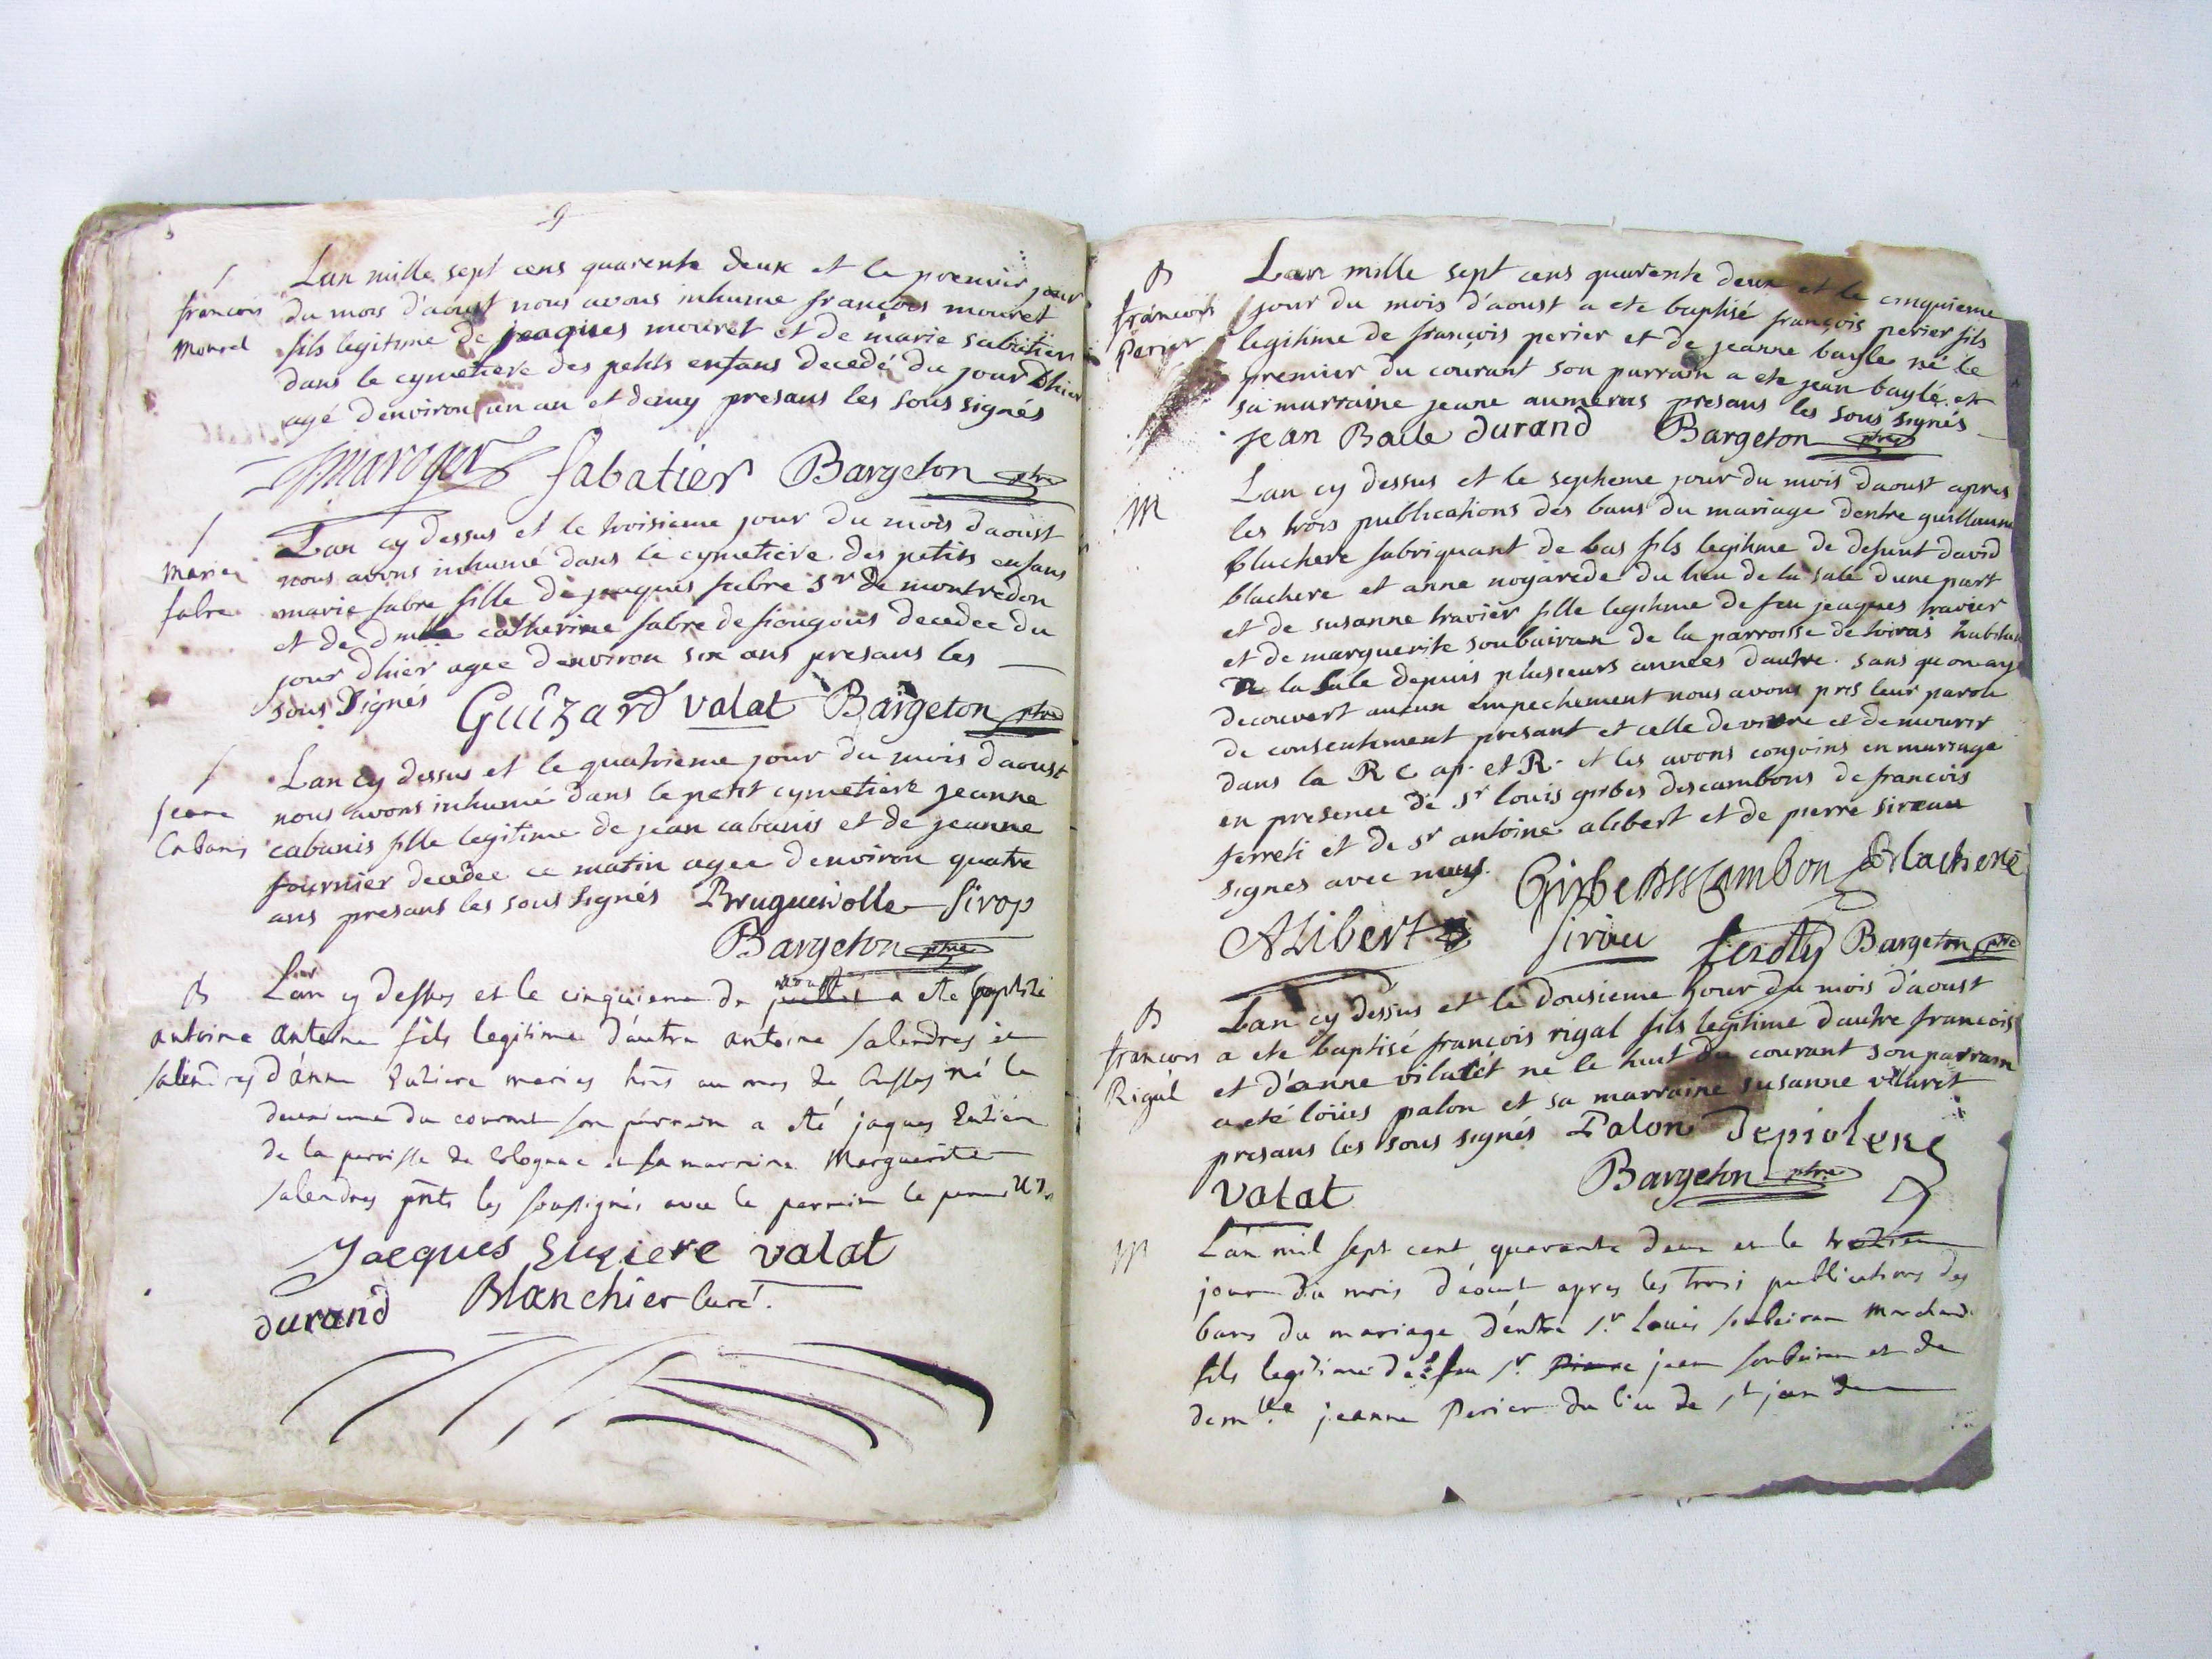 9
Lan mille sept cens quarente deux et le premier jour
francois du mois d'aoust nous avons inhume françois mouret
Mouret fils legitime de jeaques mouret et de marie sabatier
dans le cymetiere des petits enfans decedé du jour dhier
agé denviron un an et demy presans les sous signés
Sabatier Bargeton ptre
Lan cy dessus et le troisieme jour du mois daoust
marie nous avons inhumé dans le cymetiere des petits enfans
fabre marie fabre fille de jeaques fabre sr de montredon
et de dmlle catherine fabre de decedee du
jour dhier agee denviron six ans presans les
sous signés Guizard valat Bargeton ptre
Lan cy dessus et le quatrieme jour du mois daoust
jeane nous avons inhumé dans le petit cymetiere jeanne
Cabanis cabanis fille legitime de jean cabanis et de jeanne
fournier decedee ce matin agee denviron quatre
ans presans les sous signés Bruguerolle Sirop
Bargeton ptre
B Lan cy dessus et le cinquieme de aoust a ete baptisé
antoine antoine fils legitime d'autre antoine salendres et
salendres d'anne mariés né le
deuxieme du courant son parrain a été jaques
de la parroisse de et sa marraine Marguerite
salendres pnts les soussignés avec le parrain le
Jaeques valat
durand Blanchier curé.
B Lan mille sept cens quarente deux et le cinquieme
françois jour du mois d'aoust a ete baptisé françois perier fils
Perier legitime de françois perier et de jeanne bayle né le
premier du courant son parrain a ete jean baylé et
sa marraine jeane aumeras presans les sous signés
jean Baile durand Bargeton ptre
M Lan cy dessus et le septieme jour du mois daoust apres
les trois publications des bans du mariage dentre guillaume
blachere fabriquant de bas fils legitime de defunt david
blachere et anne noyarede du lieu de la sale dune part
et de susanne travier fille legitime de feu jeaques travier
et de marguerite soubairan de la parroisse de toiras habitant
la sale depuis plusieurs annees dautre. sans quon aye
decouvert aucun empechement nous avons pris leur parole
de consentement presant et celle de vivre et de mourir
dans la R C ap. et R. et les avons conjoins en mariage
en presence de sr louis girbes descambons de francois
ferreti et de sr antoine alibert et de pierre sireau
signes avec nous. Blachere
Alibert Bargeton ptre
B Lan cy dessus et le dousieme jour du mois d'aoust
francois a ete baptisé françois rigal fils legitime dautre francois
Rigal et d'anne vilaret ne le huit du courant son parrain
a eté loüis palon et sa marraine susanne vilaret
presans les sous signés Palon
Bargeton ptre
valat
M Lan mil sept cent quarante deux et le
jour du mois d'aout apres les trois publications des
bans du mariage d'entre sr Louis soubeiran marchand
fils legitime de feu sr jean soubeiran et de
demlle jeanne Perier du lieu de st jean de